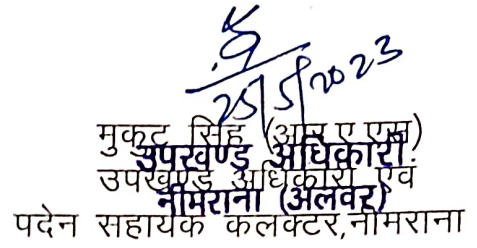 25/5/2023
मुकुट सिंह (आर ए एस)
उपखण्ड अधिकारी
उपखण्ड अधिकारी एवं
नीमराना (अलवर)
पदेन सहायक कलक्टर,नीमराना